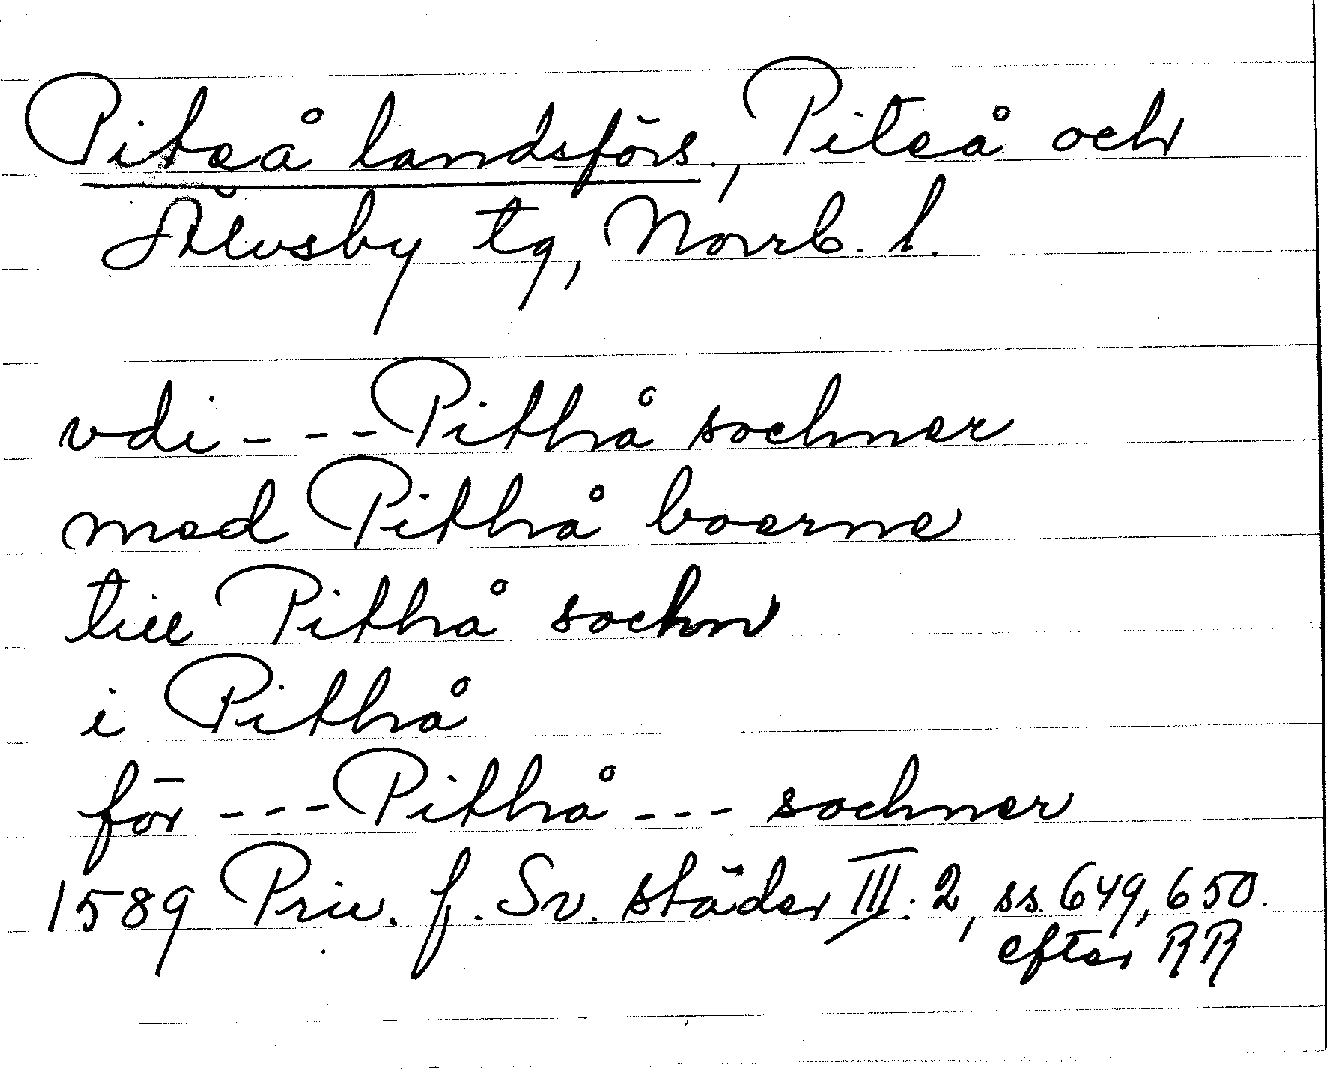 Piteå landsförs., Piteå och
Älvsby tg, Norrb. l.
vdi - - - Pithå sochner
med Pithå boerne
till Pithå sochn
i Pithå
för - - - Pithå - - - sochner
1589 Priv. f. Sv. städer III: 2, ss. 649, 650.
efter RR